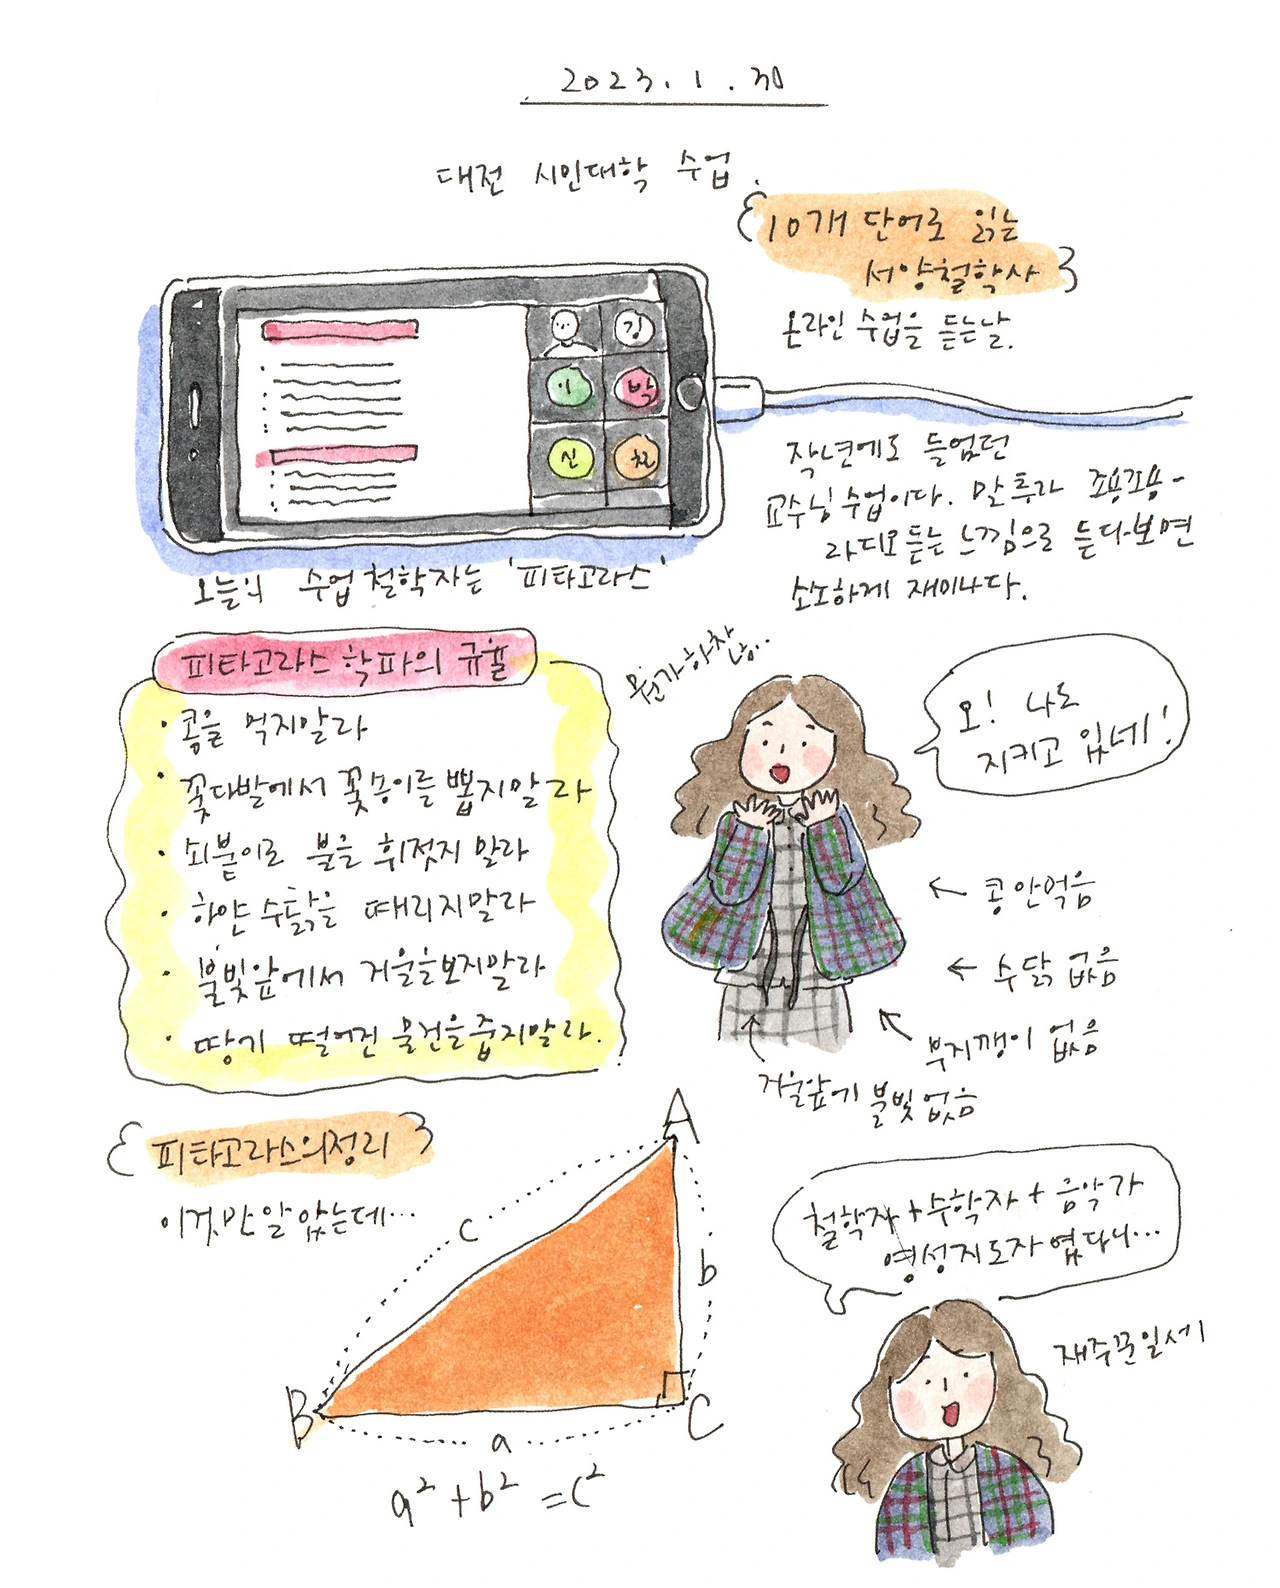 2023.1.30
대전 시민대학 수업.
{10개 단어로 읽는
서양철학사}
온라인 수업을 듣는날.
김
이 박
신 최
작년에도 들었던
교수님 수업이다. 말투가 조용조용-
라디오듣는 느낌으로 듣다보면
소소하게 재미나다.
오늘의 수업 철학자는 '피타고라스'
피타고라스 학파의 규율
· 콩을 먹지말라
· 꽃다발에서 꽃송이를 뽑지말라
· 쇠붙이로 불을 휘젓지 말라
· 하얀 수탉을 때리지말라
· 불빛앞에서 거울을보지말라
· 땅에 떨어진 물건을줍지말라.
뭔가하찮아..
오! 나도
지키고 있네!
← 콩 안먹음
← 수탉 없음
부지깽이 없음
거울앞에 불빛 없음
{피타고라스의정리}
이것만 알았는데...
A
c
b
B
C
a
a²+b²=c²
철학자+수학자+음악가
영성지도자 였다니...
재주꾼일세